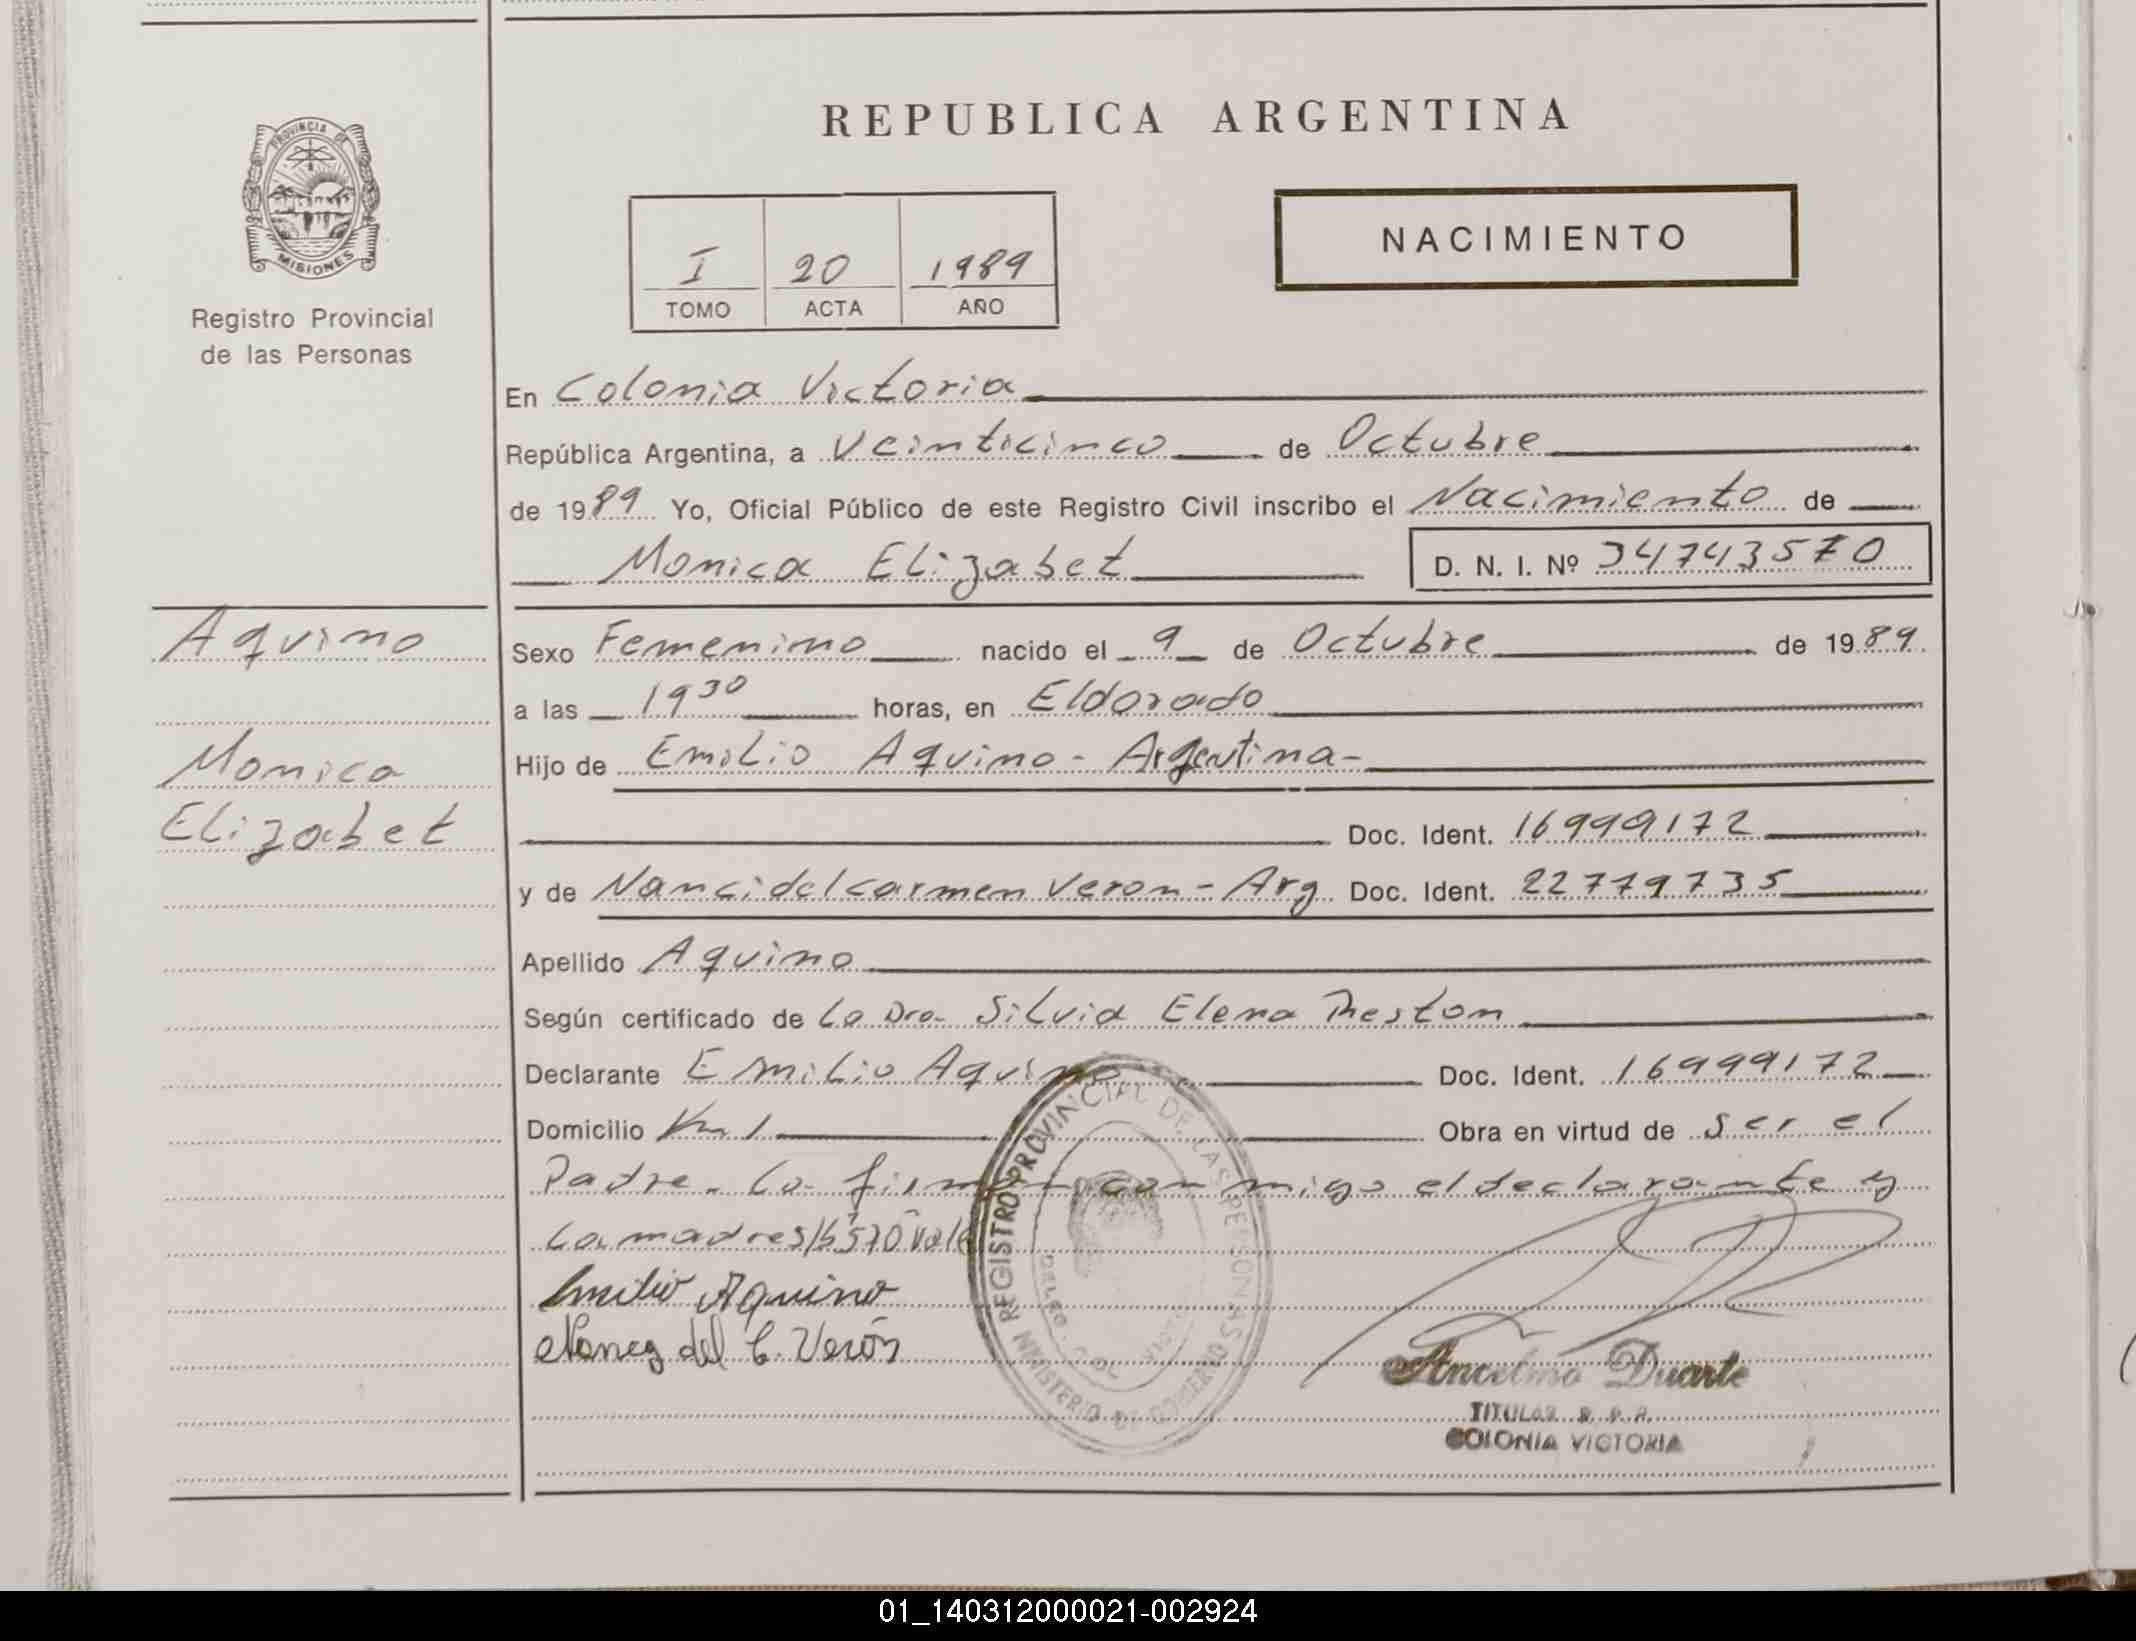 PROVINCIA DE
MISIONES
Registro Provincial
de las Personas
Aquino
Monica
Elizabet
REPUBLICA ARGENTINA
I 20 1989
TOMO ACTA AÑO
NACIMIENTO
En Colonia Victoria
República Argentina, a Veinticinco de Octubre
de 1989 Yo, Oficial Público de este Registro Civil inscribo el Nacimiento de
Monica Elizabet D. N. I. Nº 34743570
Sexo Femenino nacido el 9 de Octubre de 1989
a las 19 30 horas, en Eldorado
Hijo de Emilio Aquino - Argentina -
Doc. Ident. 16999172
y de Nanci del Carmen Veron - Arg Doc. Ident. 22779735
Apellido Aquino
Según certificado de La Dra. Silvia Elena Preston
Declarante Emilio Aquino Doc. Ident. 16999172
Domicilio Km 1 Obra en virtud de ser el
Padre. La firman con migo el declarante y
La madre s/b 570 vale
Emilio Aquino
Nancy del C. Verón
REGISTRO PROVINCIAL DE LAS PERSONAS
MINISTERIO DE GOBIERNO
Ancelmo Duarte
TITULAR R. P. P.
COLONIA VICTORIA
01_140312000021-002924